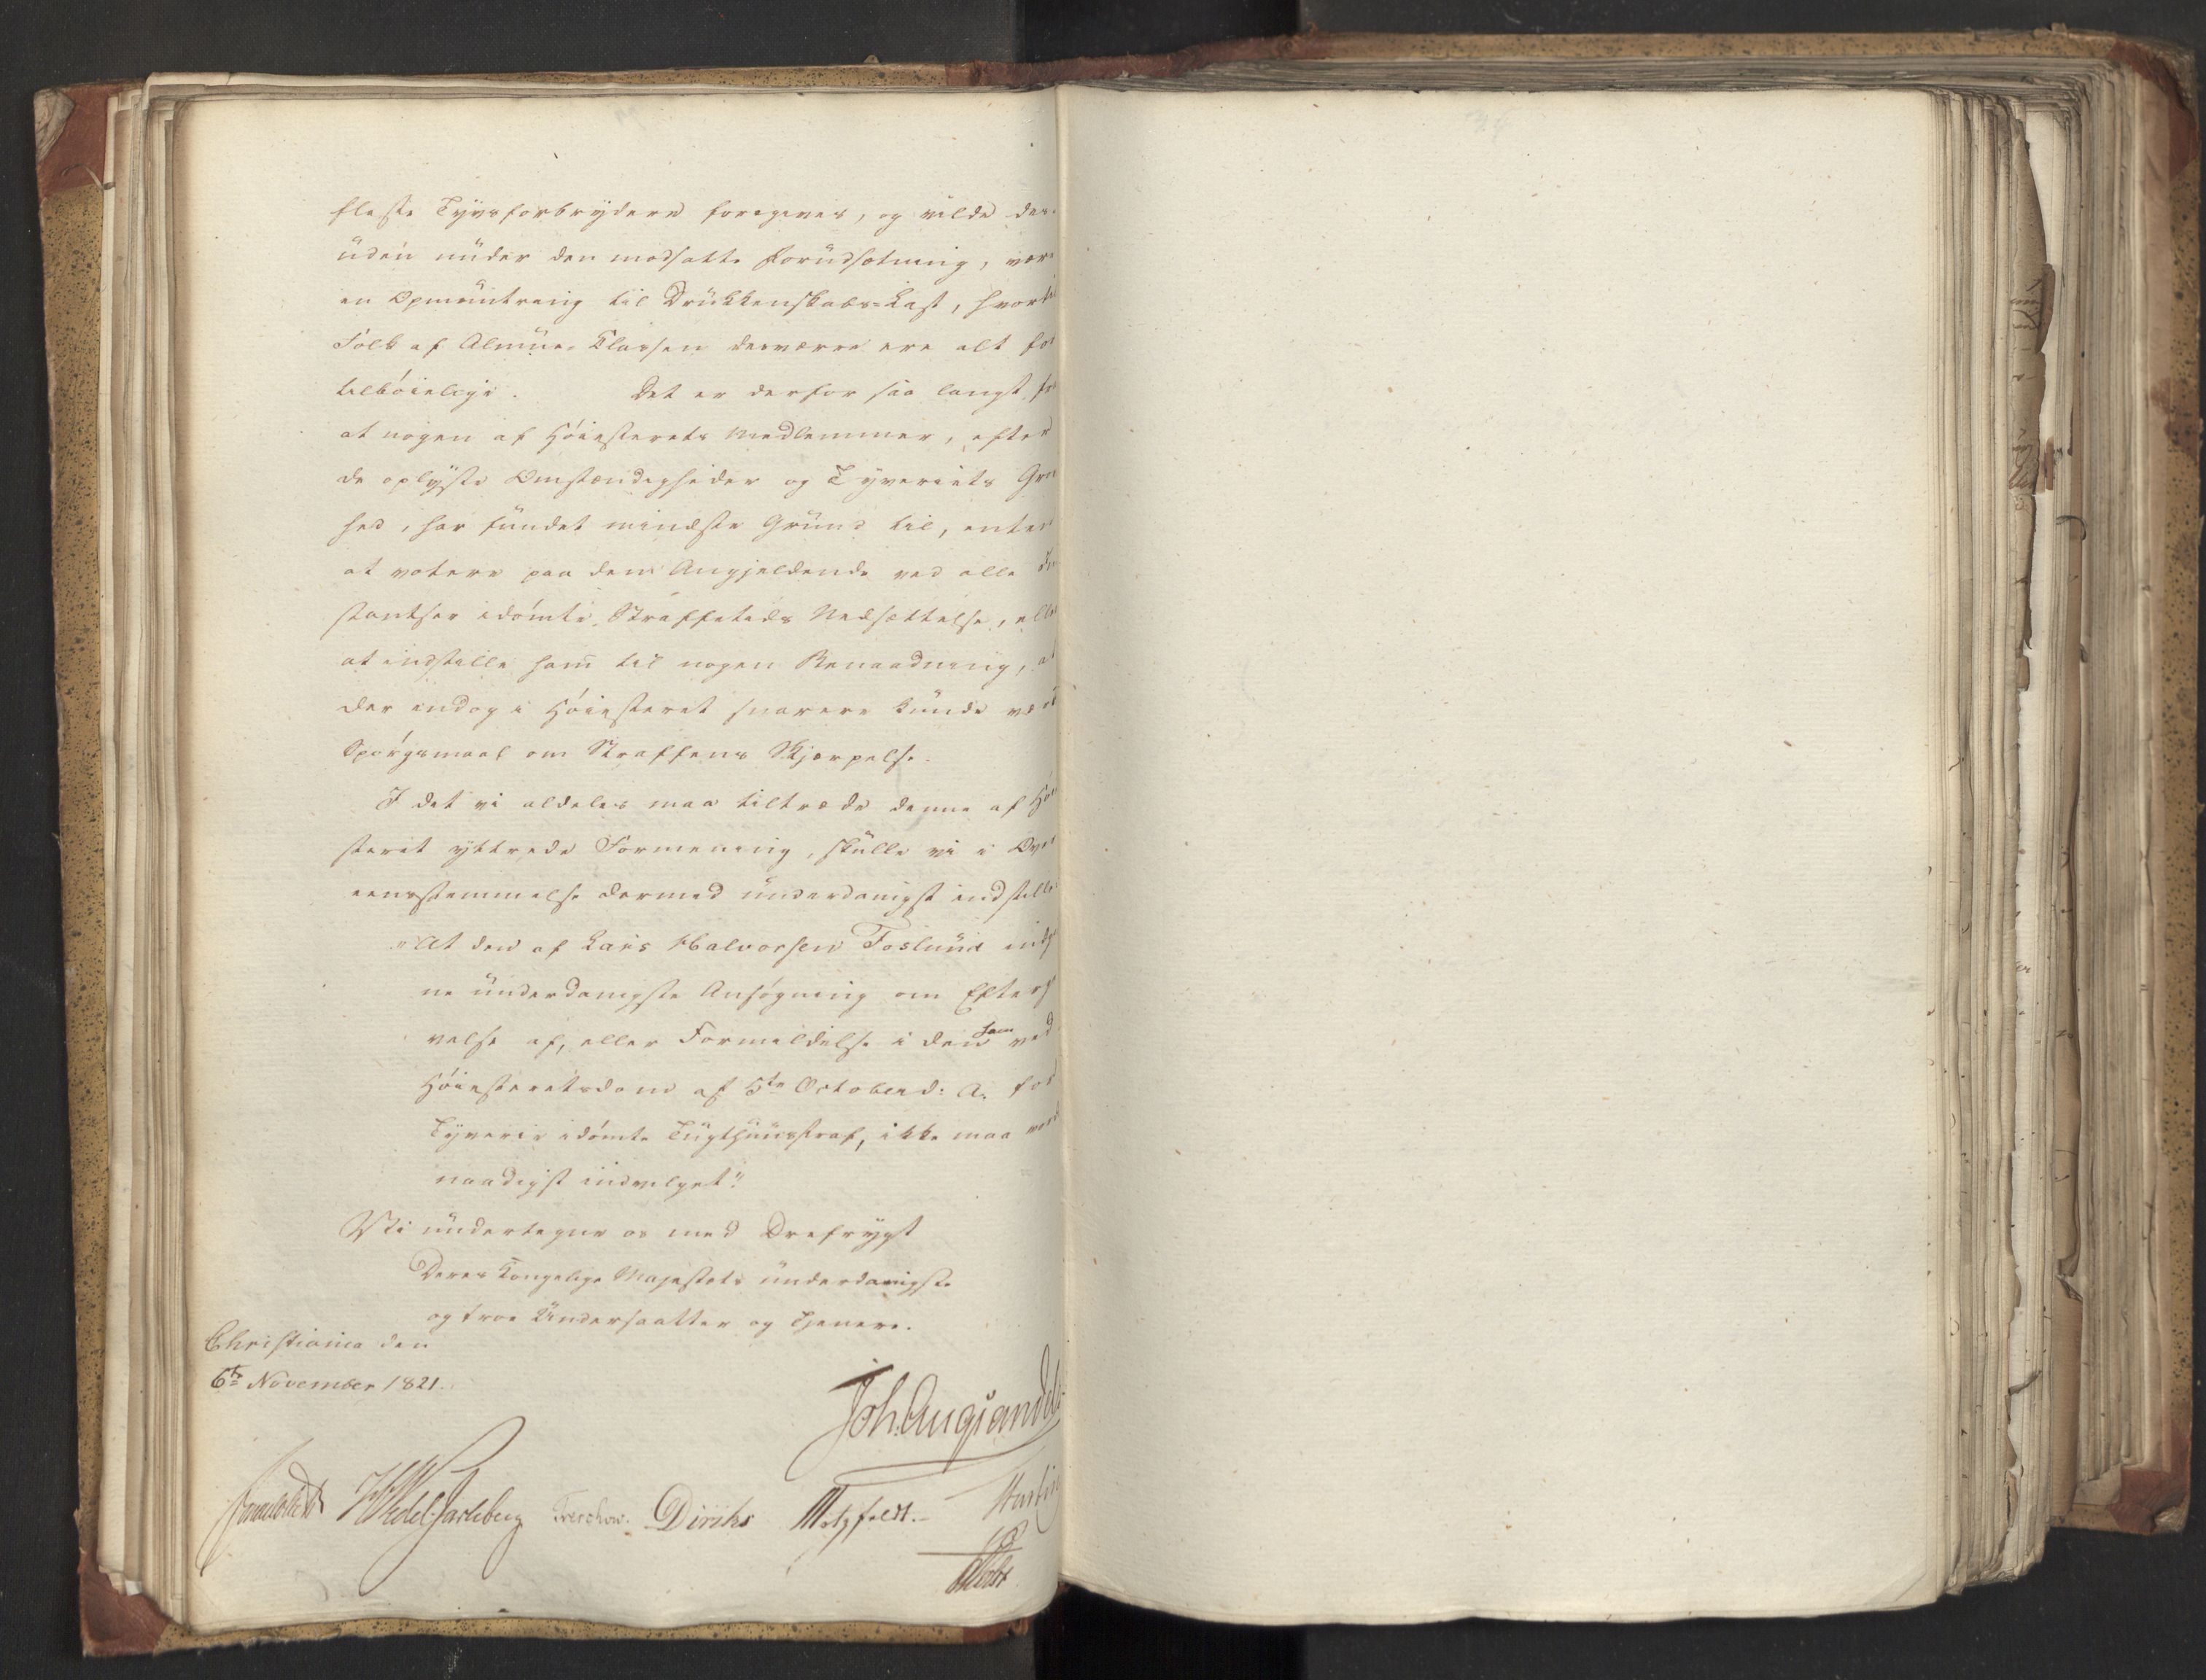 fleste Tyvsforbrydere foregives, og vilde des-
uden under den modsatte Forudsætning, være
en Opmuntring til Drukkenskabs-Last, hvortil
Folk af Almue-Classen desværre ere alt for
tilbøielige. Det er derfor saa langt fra
at nogen af Høiesterets Medlemmer, efter
de oplyste Omstændigheder og Tyveriets Grov
hed, har fundet mindste Grund til, enten
at votere paa den Angjeldende ved alle In
stantser idømte Straffetids Nedsættelse, eller
at indstille ham til nogen Benaadning, at
der endog i Høiesteret snarere kunde være
Spørgsmaal om Straffens Skjærpelse.
I det vi aldeles maa tiltræde denne af Høie
steret yttrede Formening, skulle vi i Over
eensstemmelse dermed underdanigst indstille:
"At den af Lars Halvorsen Foslund indgiv
ne underdanigste Ansøgning om Eftergi
velse af, eller Formildelse i den ham ved
Høiesteretsdom af 5te October d: A. for
Tyverie idømte Tugthuusstraf, ikke maa vorde
naadigst indvilget."
Vi undertegne os med Ærefrygt
Deres Kongelige Majestæts underdanigste
og troe Undersaatter og Tjenere.
Christiania den
6te November 1821.
Joh. Aug. Sandels
Sommerhielm HWedel-Jarlsberg Treschow. Diriks Motzfeldt.